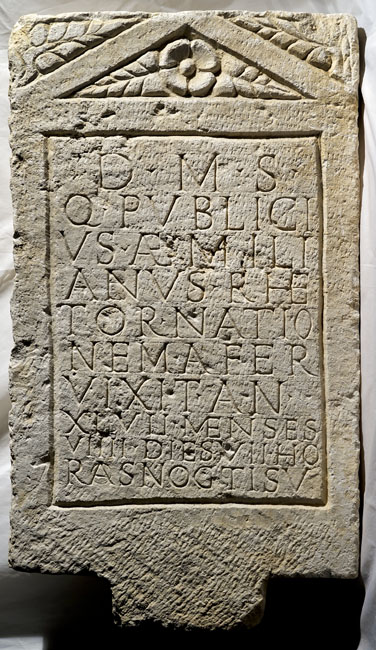 D · M · S
Q · PVBLICI
VS · ÆMILI
ANVS · RHE
TOR · NATIO
NE · MAFER
VIXIT · AN
XLVII · MENSES
VIIII · DIES · VII · HO
RAS NOCTIS V